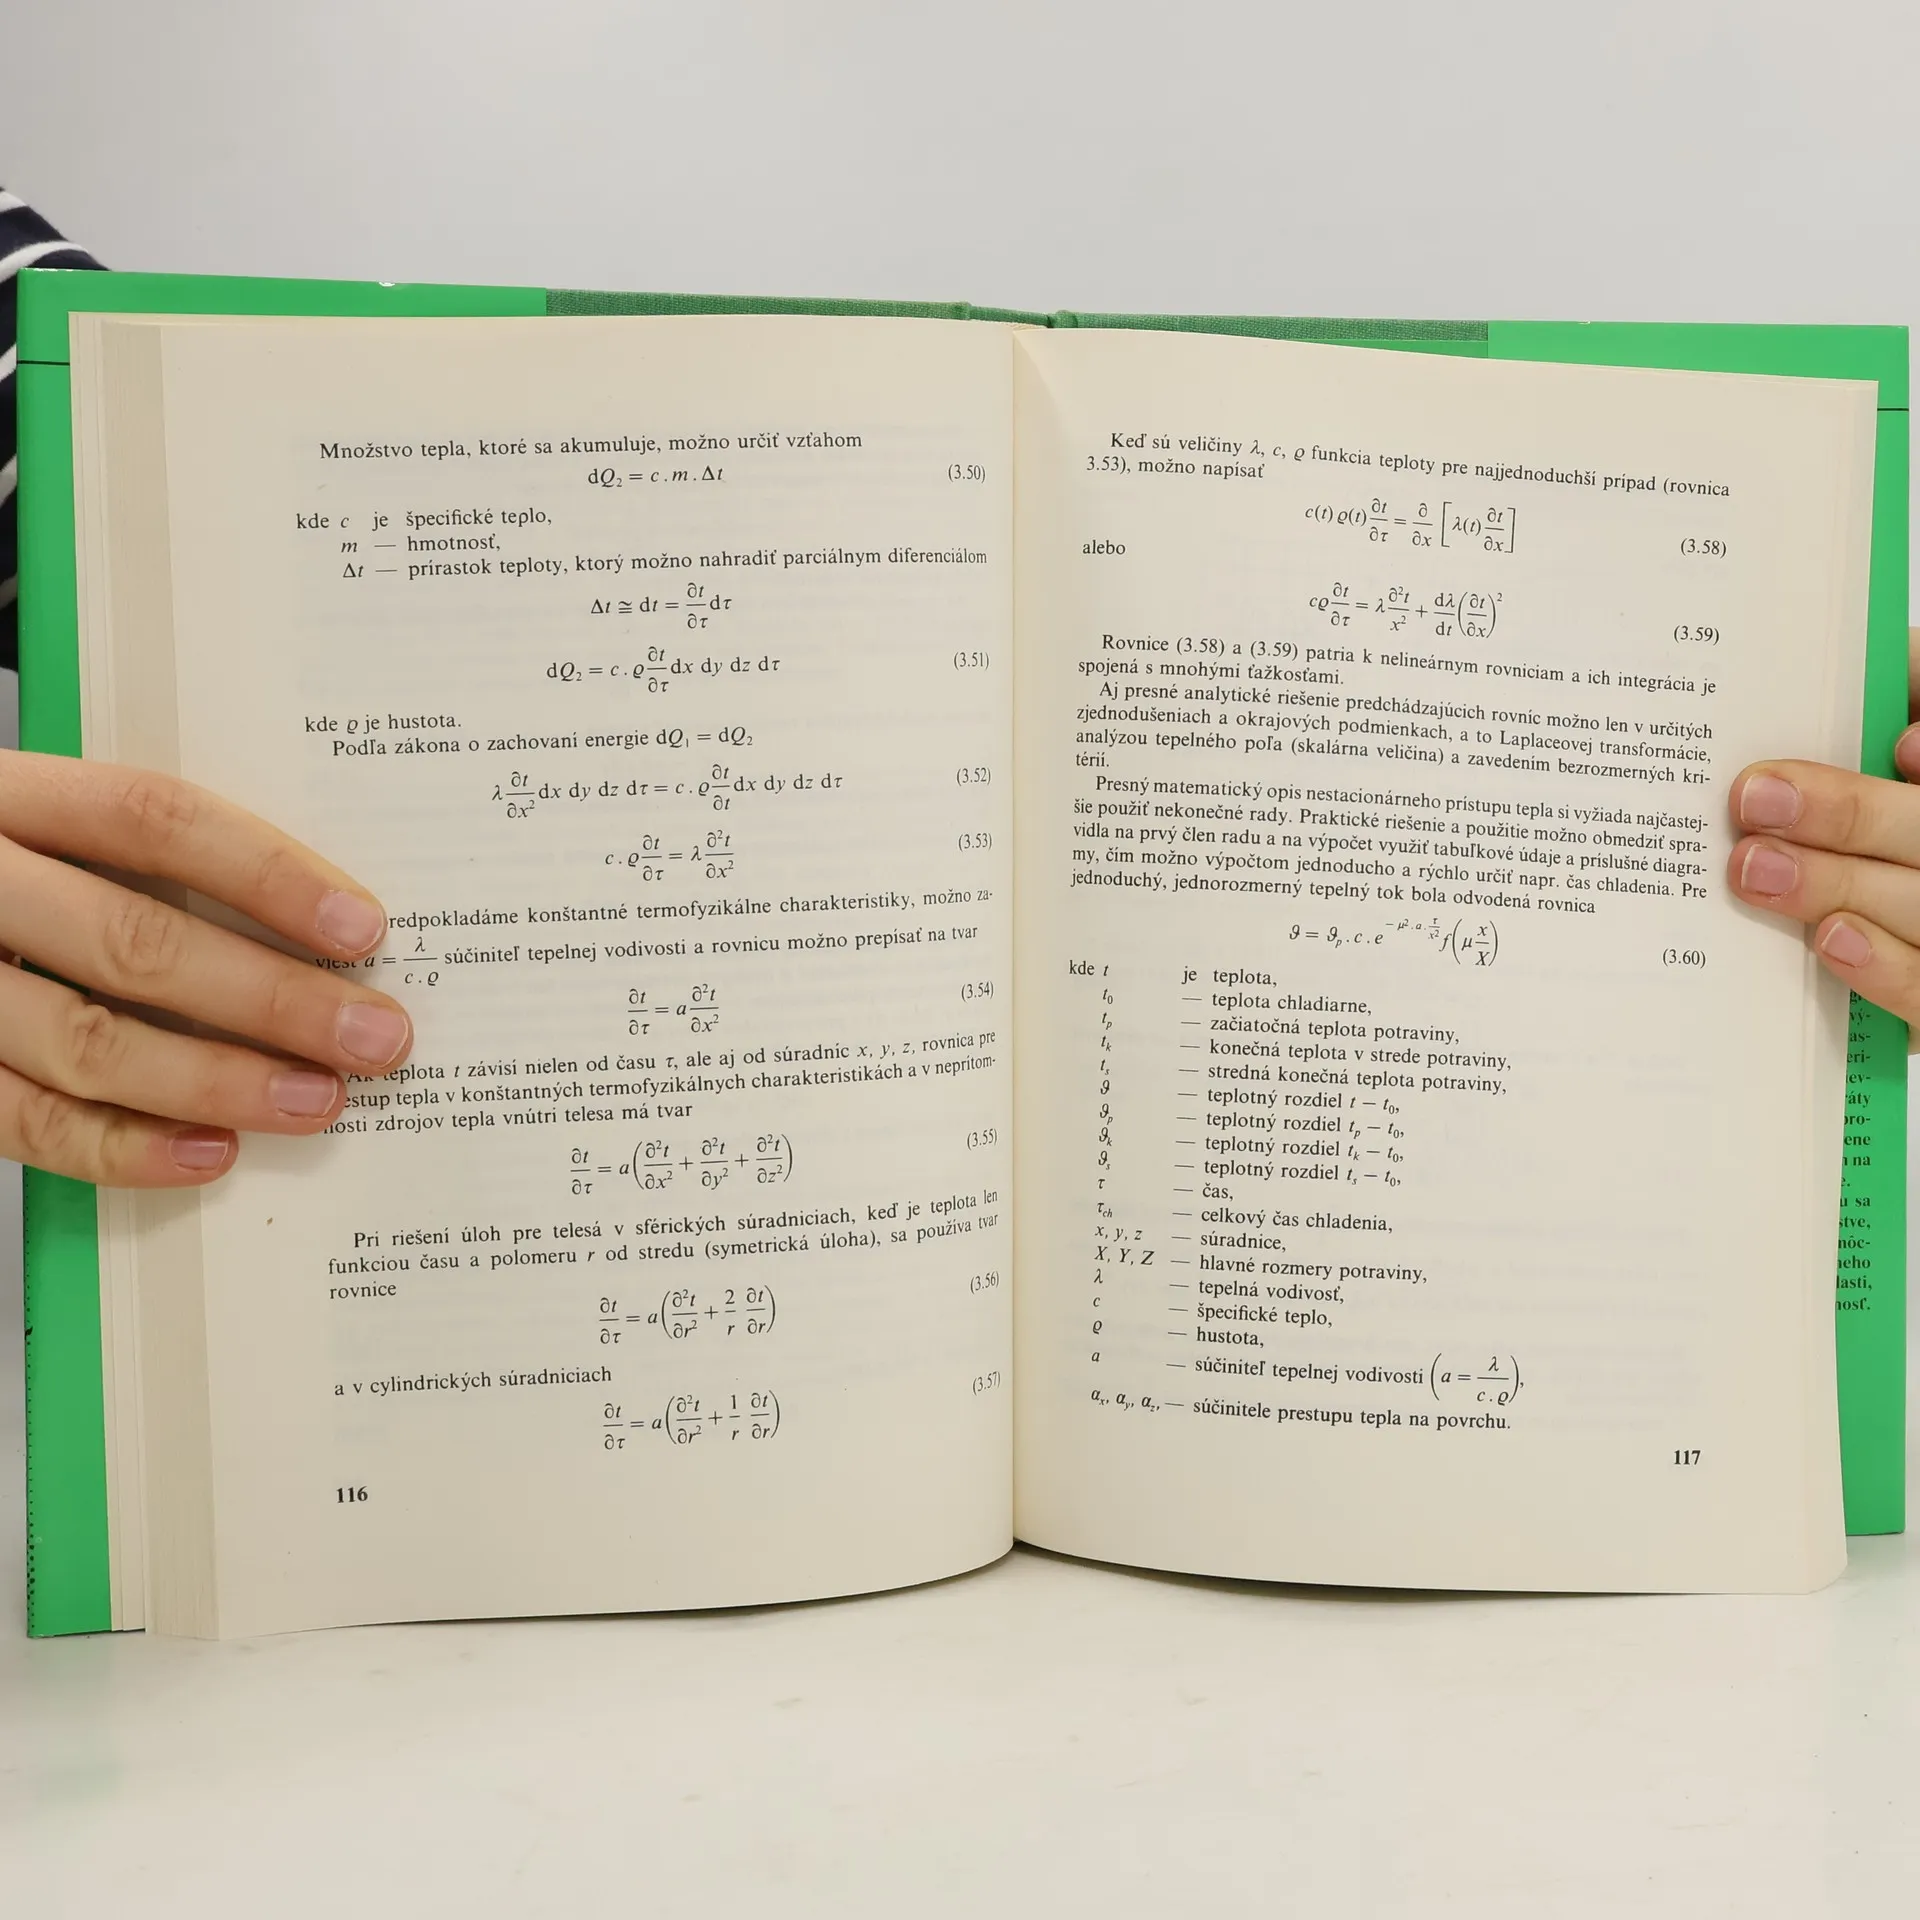 Množstvo tepla, ktoré sa akumuluje, možno určiť vzťahom
dQ₂ = c . m . Δt (3.50)
kde c je špecifické teplo,
m — hmotnosť,
Δt — prírastok teploty, ktorý možno nahradiť parciálnym diferenciálom
Δt ≅ dt = ∂t/∂τ dτ
dQ₂ = c . ϱ ∂t/∂τ dx dy dz dτ (3.51)
kde ϱ je hustota.
Podľa zákona o zachovaní energie dQ₁ = dQ₂
λ ∂t/∂x² dx dy dz dτ = c . ϱ ∂t/∂t dx dy dz dτ (3.52)
c . ϱ ∂t/∂τ = λ ∂²t/∂x² (3.53)
redpokladáme konštantné termofyzikálne charakteristiky, možno za-
viesť a = λ/c . ϱ súčiniteľ tepelnej vodivosti a rovnicu možno prepísať na tvar
∂t/∂τ = a ∂²t/∂x² (3.54)
Ak teplota t závisí nielen od času τ, ale aj od súradníc x, y, z, rovnica pre
estup tepla v konštantných termofyzikálnych charakteristikách a v neprítom-
nosti zdrojov tepla vnútri telesa má tvar
∂t/∂τ = a(∂²t/∂x² + ∂²t/∂y² + ∂²t/∂z²) (3.55)
Pri riešení úloh pre telesá v sférických súradniciach, keď je teplota len
funkciou času a polomeru r od stredu (symetrická úloha), sa používa tvar
rovnice
∂t/∂τ = a(∂²t/∂r² + 2/r ∂t/∂r) (3.56)
a v cylindrických súradniciach
∂t/∂τ = a(∂²t/∂r² + 1/r ∂t/∂r) (3.57)
116
Keď sú veličiny λ, c, ϱ funkcia teploty pre najjednoduchší prípad (rovnica
3.53), možno napísať
c(t) ϱ(t) ∂t/∂τ = ∂/∂x [λ(t) ∂t/∂x] (3.58)
alebo
cϱ ∂t/∂τ = λ ∂²t/x² + dλ/dt (∂t/∂x)² (3.59)
Rovnice (3.58) a (3.59) patria k nelineárnym rovniciam a ich integrácia je
spojená s mnohými ťažkosťami.
Aj presné analytické riešenie predchádzajúcich rovníc možno len v určitých
zjednodušeniach a okrajových podmienkach, a to Laplaceovej transformácie,
analýzou tepelného poľa (skalárna veličina) a zavedením bezrozmerných kri-
térií.
Presný matematický opis nestacionárneho prístupu tepla si vyžiada najčastej-
šie použiť nekonečné rady. Praktické riešenie a použitie možno obmedziť spra-
vidla na prvý člen radu a na výpočet využiť tabuľkové údaje a príslušné diagra-
my, čím možno výpočtom jednoducho a rýchlo určiť napr. čas chladenia. Pre
jednoduchý, jednorozmerný tepelný tok bola odvodená rovnica
ϑ = ϑₚ . c . e^(−μ² . a . τ/x²) f(μ x/X) (3.60)
kde t je teplota,
t₀ — teplota chladiarne,
tₚ — začiatočná teplota potraviny,
tₖ — konečná teplota v strede potraviny,
tₛ — stredná konečná teplota potraviny,
ϑ — teplotný rozdiel t − t₀,
ϑₚ — teplotný rozdiel tₚ − t₀,
ϑₖ — teplotný rozdiel tₖ − t₀,
ϑₛ — teplotný rozdiel tₛ − t₀,
τ — čas,
τ_ch — celkový čas chladenia,
x, y, z — súradnice,
X, Y, Z — hlavné rozmery potraviny,
λ — tepelná vodivosť,
c — špecifické teplo,
ϱ — hustota,
a — súčiniteľ tepelnej vodivosti (a = λ/c . ϱ),
αₓ, α_y, α_z, — súčinitele prestupu tepla na povrchu.
117
vý-
as-
eri-
ev-
áty
pro-
ene
na
u sa
stve,
môc-
neho
lasti,
nosť.